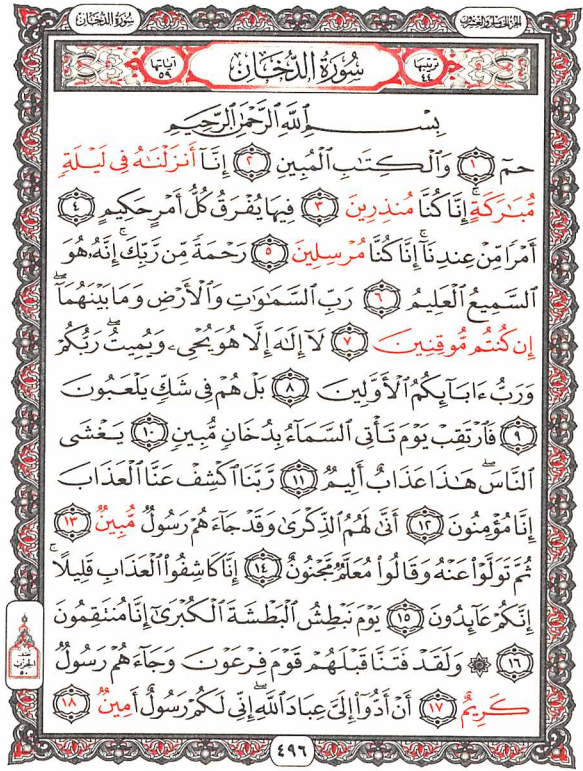 سُورَةُ الدُّخَانِ
الجزء الخامس والعشرون
ترتيبها
٤٤
سُورَةُ الدُّخَان
آياتها
٥٩
بِسْمِ ٱللَّهِ ٱلرَّحْمَٰنِ ٱلرَّحِيمِ
حمٓ ١ وَٱلْكِتَٰبِ ٱلْمُبِينِ ٢ إِنَّآ أَنزَلْنَٰهُ فِى لَيْلَةٍ
مُّبَٰرَكَةٍ ۚ إِنَّا كُنَّا مُنذِرِينَ ٣ فِيهَا يُفْرَقُ كُلُّ أَمْرٍ حَكِيمٍ ٤
أَمْرًا مِّنْ عِندِنَآ ۚ إِنَّا كُنَّا مُرْسِلِينَ ٥ رَحْمَةً مِّن رَّبِّكَ ۚ إِنَّهُۥ هُوَ
ٱلسَّمِيعُ ٱلْعَلِيمُ ٦ رَبِّ ٱلسَّمَٰوَٰتِ وَٱلْأَرْضِ وَمَا بَيْنَهُمَآ ۖ
إِن كُنتُم مُّوقِنِينَ ٧ لَآ إِلَٰهَ إِلَّا هُوَ يُحْىِۦ وَيُمِيتُ ۖ رَبُّكُمْ
وَرَبُّ ءَابَآئِكُمُ ٱلْأَوَّلِينَ ٨ بَلْ هُمْ فِى شَكٍّ يَلْعَبُونَ
٩ فَٱرْتَقِبْ يَوْمَ تَأْتِى ٱلسَّمَآءُ بِدُخَانٍ مُّبِينٍ ١٠ يَغْشَى
ٱلنَّاسَ ۖ هَٰذَا عَذَابٌ أَلِيمٌ ١١ رَّبَّنَا ٱكْشِفْ عَنَّا ٱلْعَذَابَ
إِنَّا مُؤْمِنُونَ ١٢ أَنَّىٰ لَهُمُ ٱلذِّكْرَىٰ وَقَدْ جَآءَهُمْ رَسُولٌ مُّبِينٌ ١٣
ثُمَّ تَوَلَّوْا۟ عَنْهُ وَقَالُوا۟ مُعَلَّمٌ مَّجْنُونٌ ١٤ إِنَّا كَاشِفُوا۟ ٱلْعَذَابِ قَلِيلًا ۚ
إِنَّكُمْ عَآئِدُونَ ١٥ يَوْمَ نَبْطِشُ ٱلْبَطْشَةَ ٱلْكُبْرَىٰٓ إِنَّا مُنتَقِمُونَ
١٦ ۞ وَلَقَدْ فَتَنَّا قَبْلَهُمْ قَوْمَ فِرْعَوْنَ وَجَآءَهُمْ رَسُولٌ
كَرِيمٌ ١٧ أَنْ أَدُّوٓا۟ إِلَىَّ عِبَادَ ٱللَّهِ ۖ إِنِّى لَكُمْ رَسُولٌ أَمِينٌ ١٨
الحزب
٥٠
٤٩٦